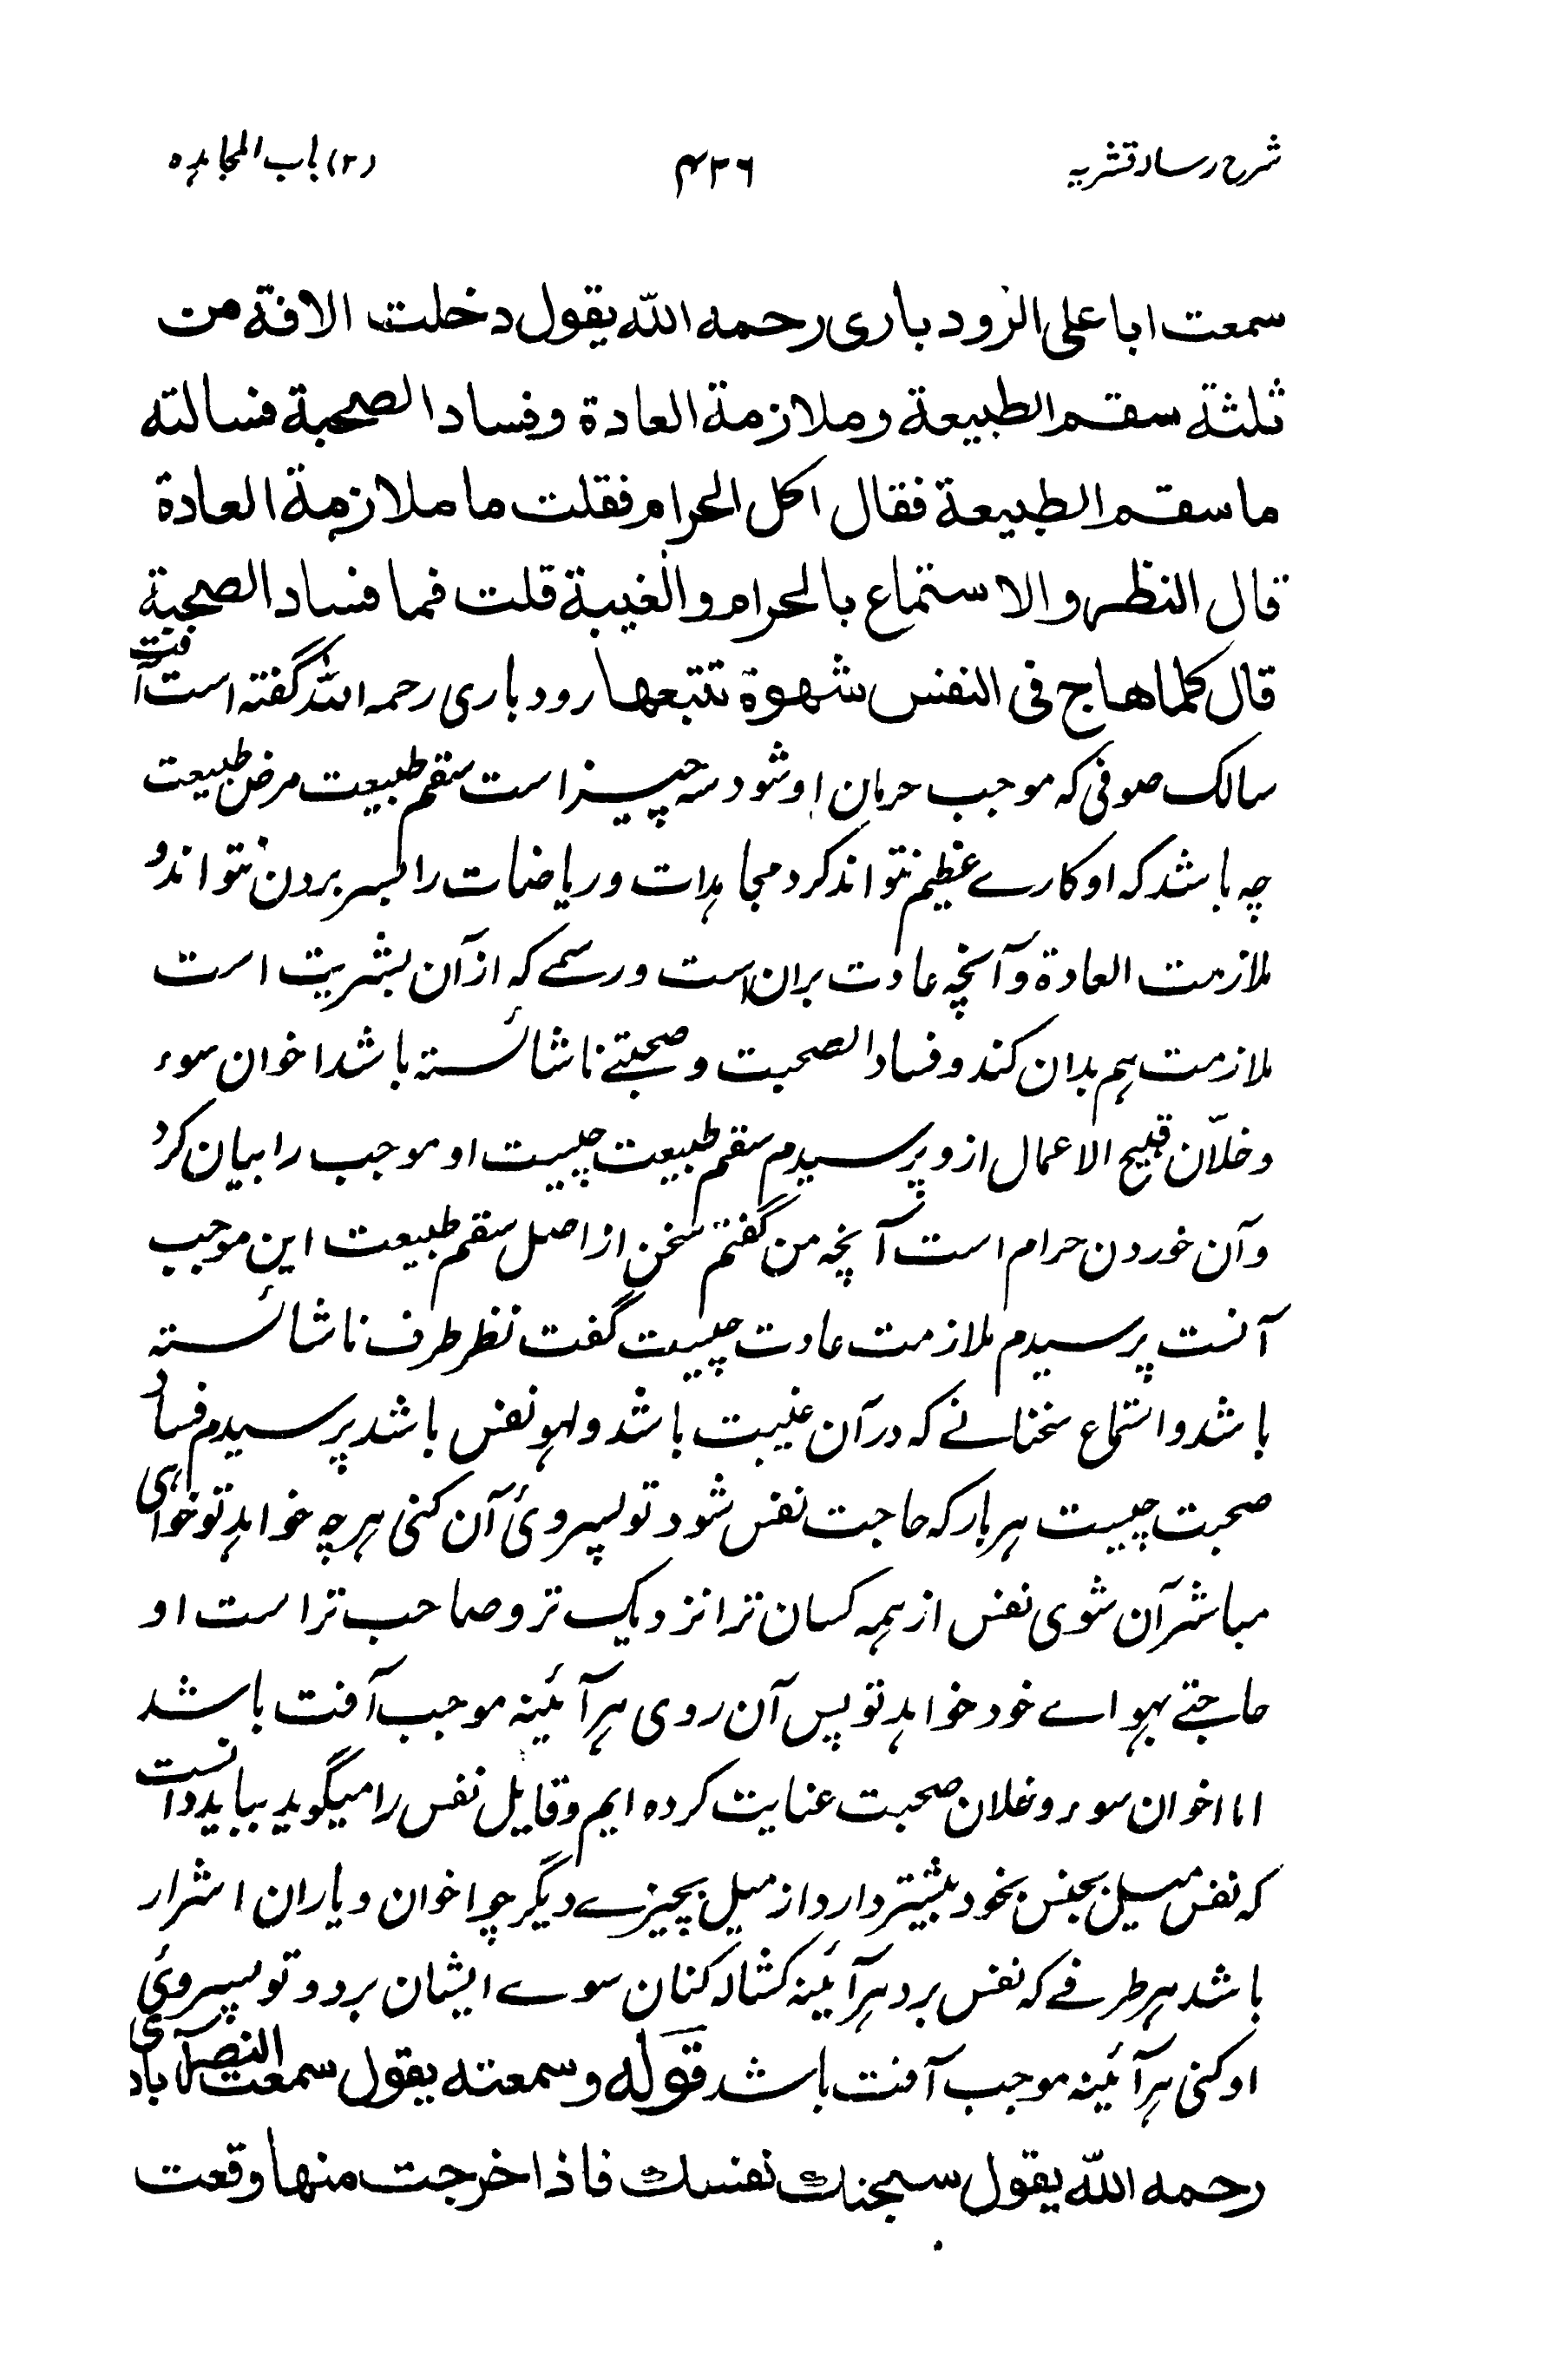 شرح رساله قشریه
۴۳۶
(۲) باب المجاہدہ
سمعت ابا علی الرودباری رحمه الله یقول دخلت الافة من
ثلثة سقم الطبیعة وملازمة العادة وفساد الصحبة فسالته
ما سقم الطبیعة فقال اکل الحرام فقلت ما ملازمة العادة
قال النظر والاستماع بالحرام والغیبة قلت فما فساد الصحبة
قال کلما هاج فی النفس شهوة تتبعها رودباری رحمه الله گفته است آفت
سالک صوفی که موجب حرمان او شود سه چیز است سقم طبیعت مرض طبیعت
چه باشد که او کارے عظیم نتواند کرد مجاہدات وریاضات را بسر بردن نتواند و
ملازمت العادة و آنچه عادت بران است ورسمے که از آن بشریت است
ملازمت ہم بدان کند وفساد الصحبت وصحبتے ناشائسته باشد اخوان سوء
وخلّان قبیح الاعمال ازو پرسیدم سقم طبیعت چیست او موجب را بیان کرد
وآن خوردن حرام است آنچه من گفتم سخن از اصل سقم طبیعت این موجب
آنست پرسیدم ملازمت عادت چیست گفت نظر طرف ناشائسته
باشد واستماع سخنانے که در آن غیبت باشد ولہو نفس باشد پرسیدم فساد
صحبت چیست ہر بار که حاجت نفس شود تو پیروئ آن کنی ہرچه خواہد تو خواہی
مباشر آن شوی نفس از ہمه کسان ترا نزدیک تر وصاحب تر است او
حاجتے بہواے خود خواہد تو پس آن روی ہرآئینه موجب آفت باشد
اما اخوان سوء وخلان صحبت عنایت کرده ایم وقایل نفس را میگوید بباید دانست
که نفس میل بجنس بخود بیشتر دارد از میل بچیزے دیگر چو اخوان ویاران اشرار
باشد ہر طرفے که نفس برد ہرآئینه کشاله کنان سوے ایشان برد و تو پیروئ
او کنی ہرآئینه موجب آفت باشد قوله وسمعته یقول سمعت النصرآبادی
رحمه الله یقول سجنك نفسك فاذا خرجت منها وقعت